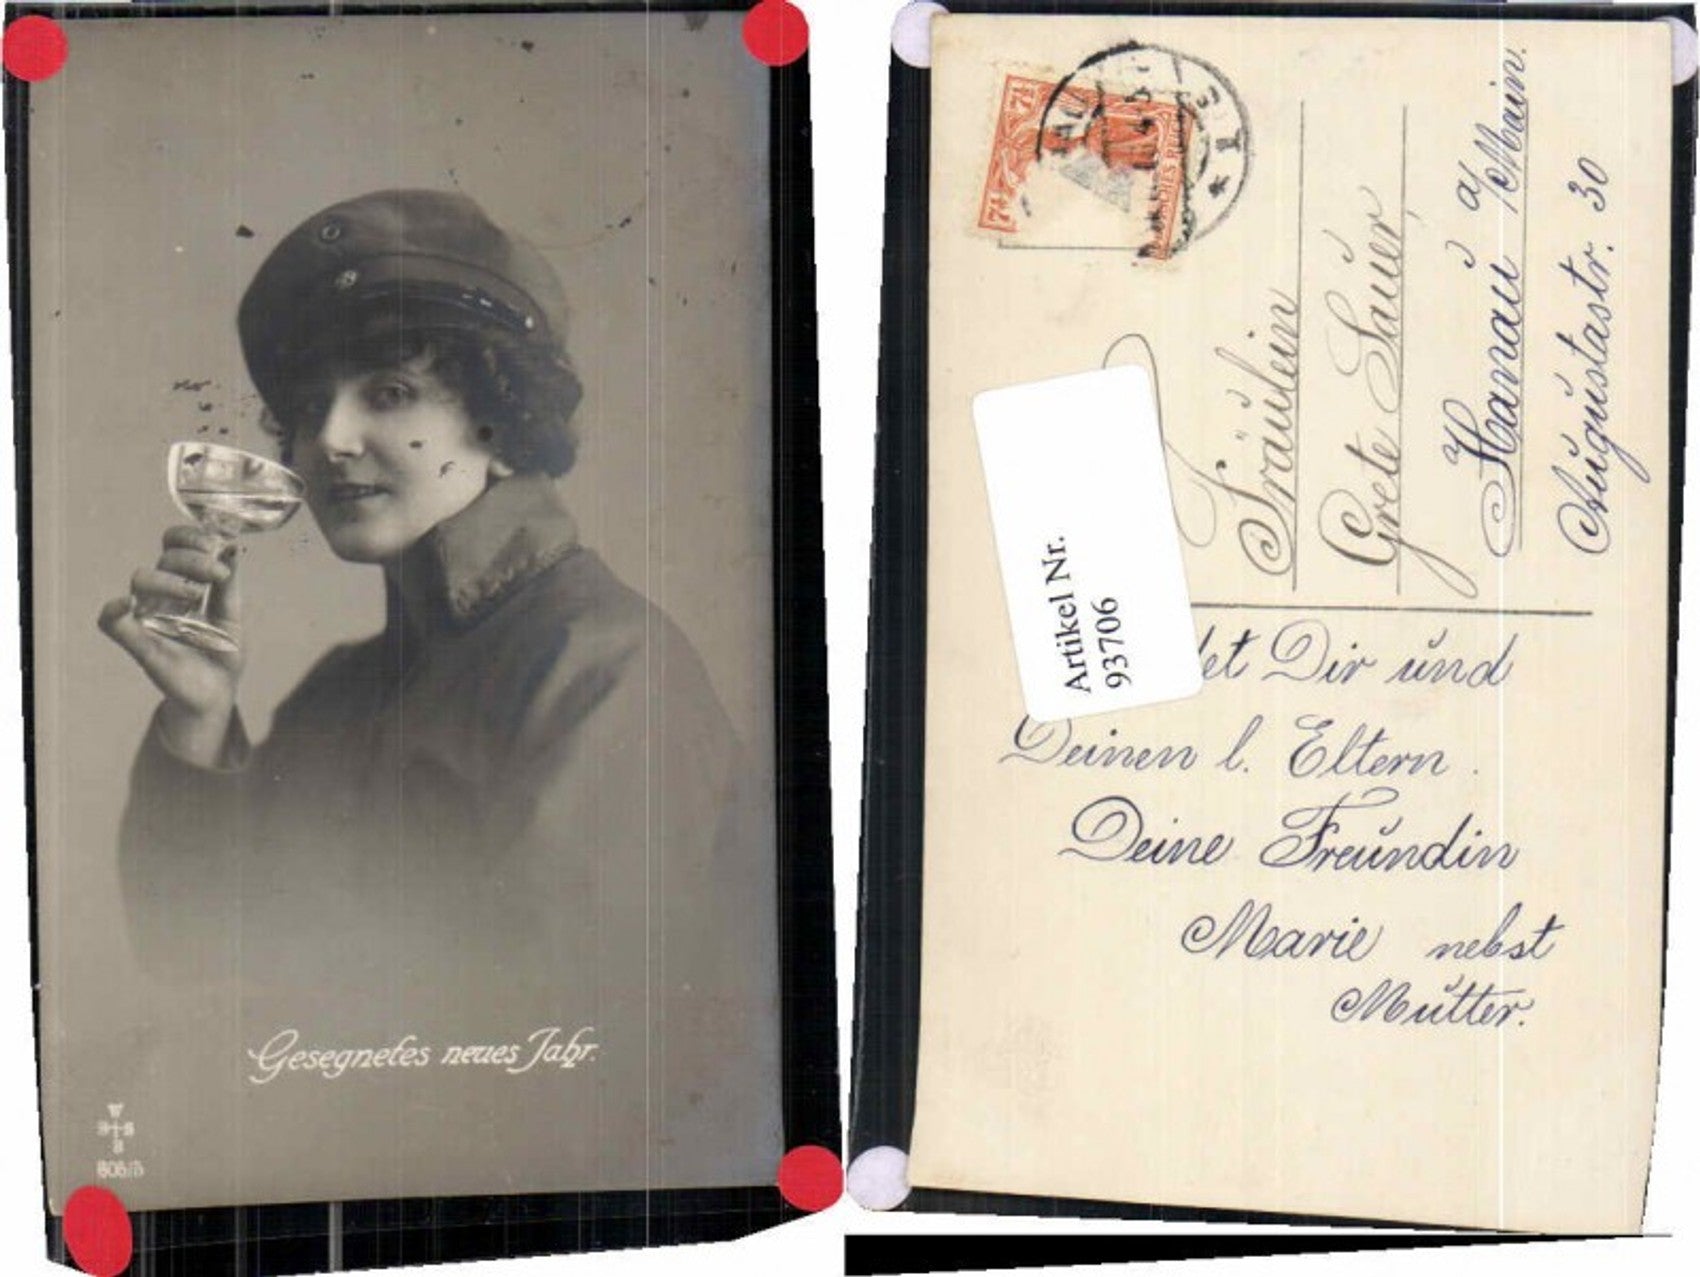 Gesegnetes neues Jahr.
W
B S
B
7½
7½
Fräulein
Grete Sauer,
Hanau a/Main.
Augustastr. 30
Artikel Nr.
93706
Dir und
Deinen l. Eltern.
Deine Freundin
Marie nebst
Mutter.